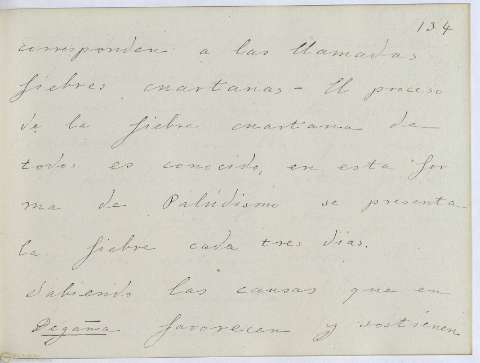 134
corresponden a las llamadas
fiebres cuartanas - El proceso
de la fiebre cuartana de
todos es conocido, en esta for
ma de Palúdismo se presenta
la fiebre cada tres dias.
Sabiendo las causas que en
Degaña favorecen y sostienen